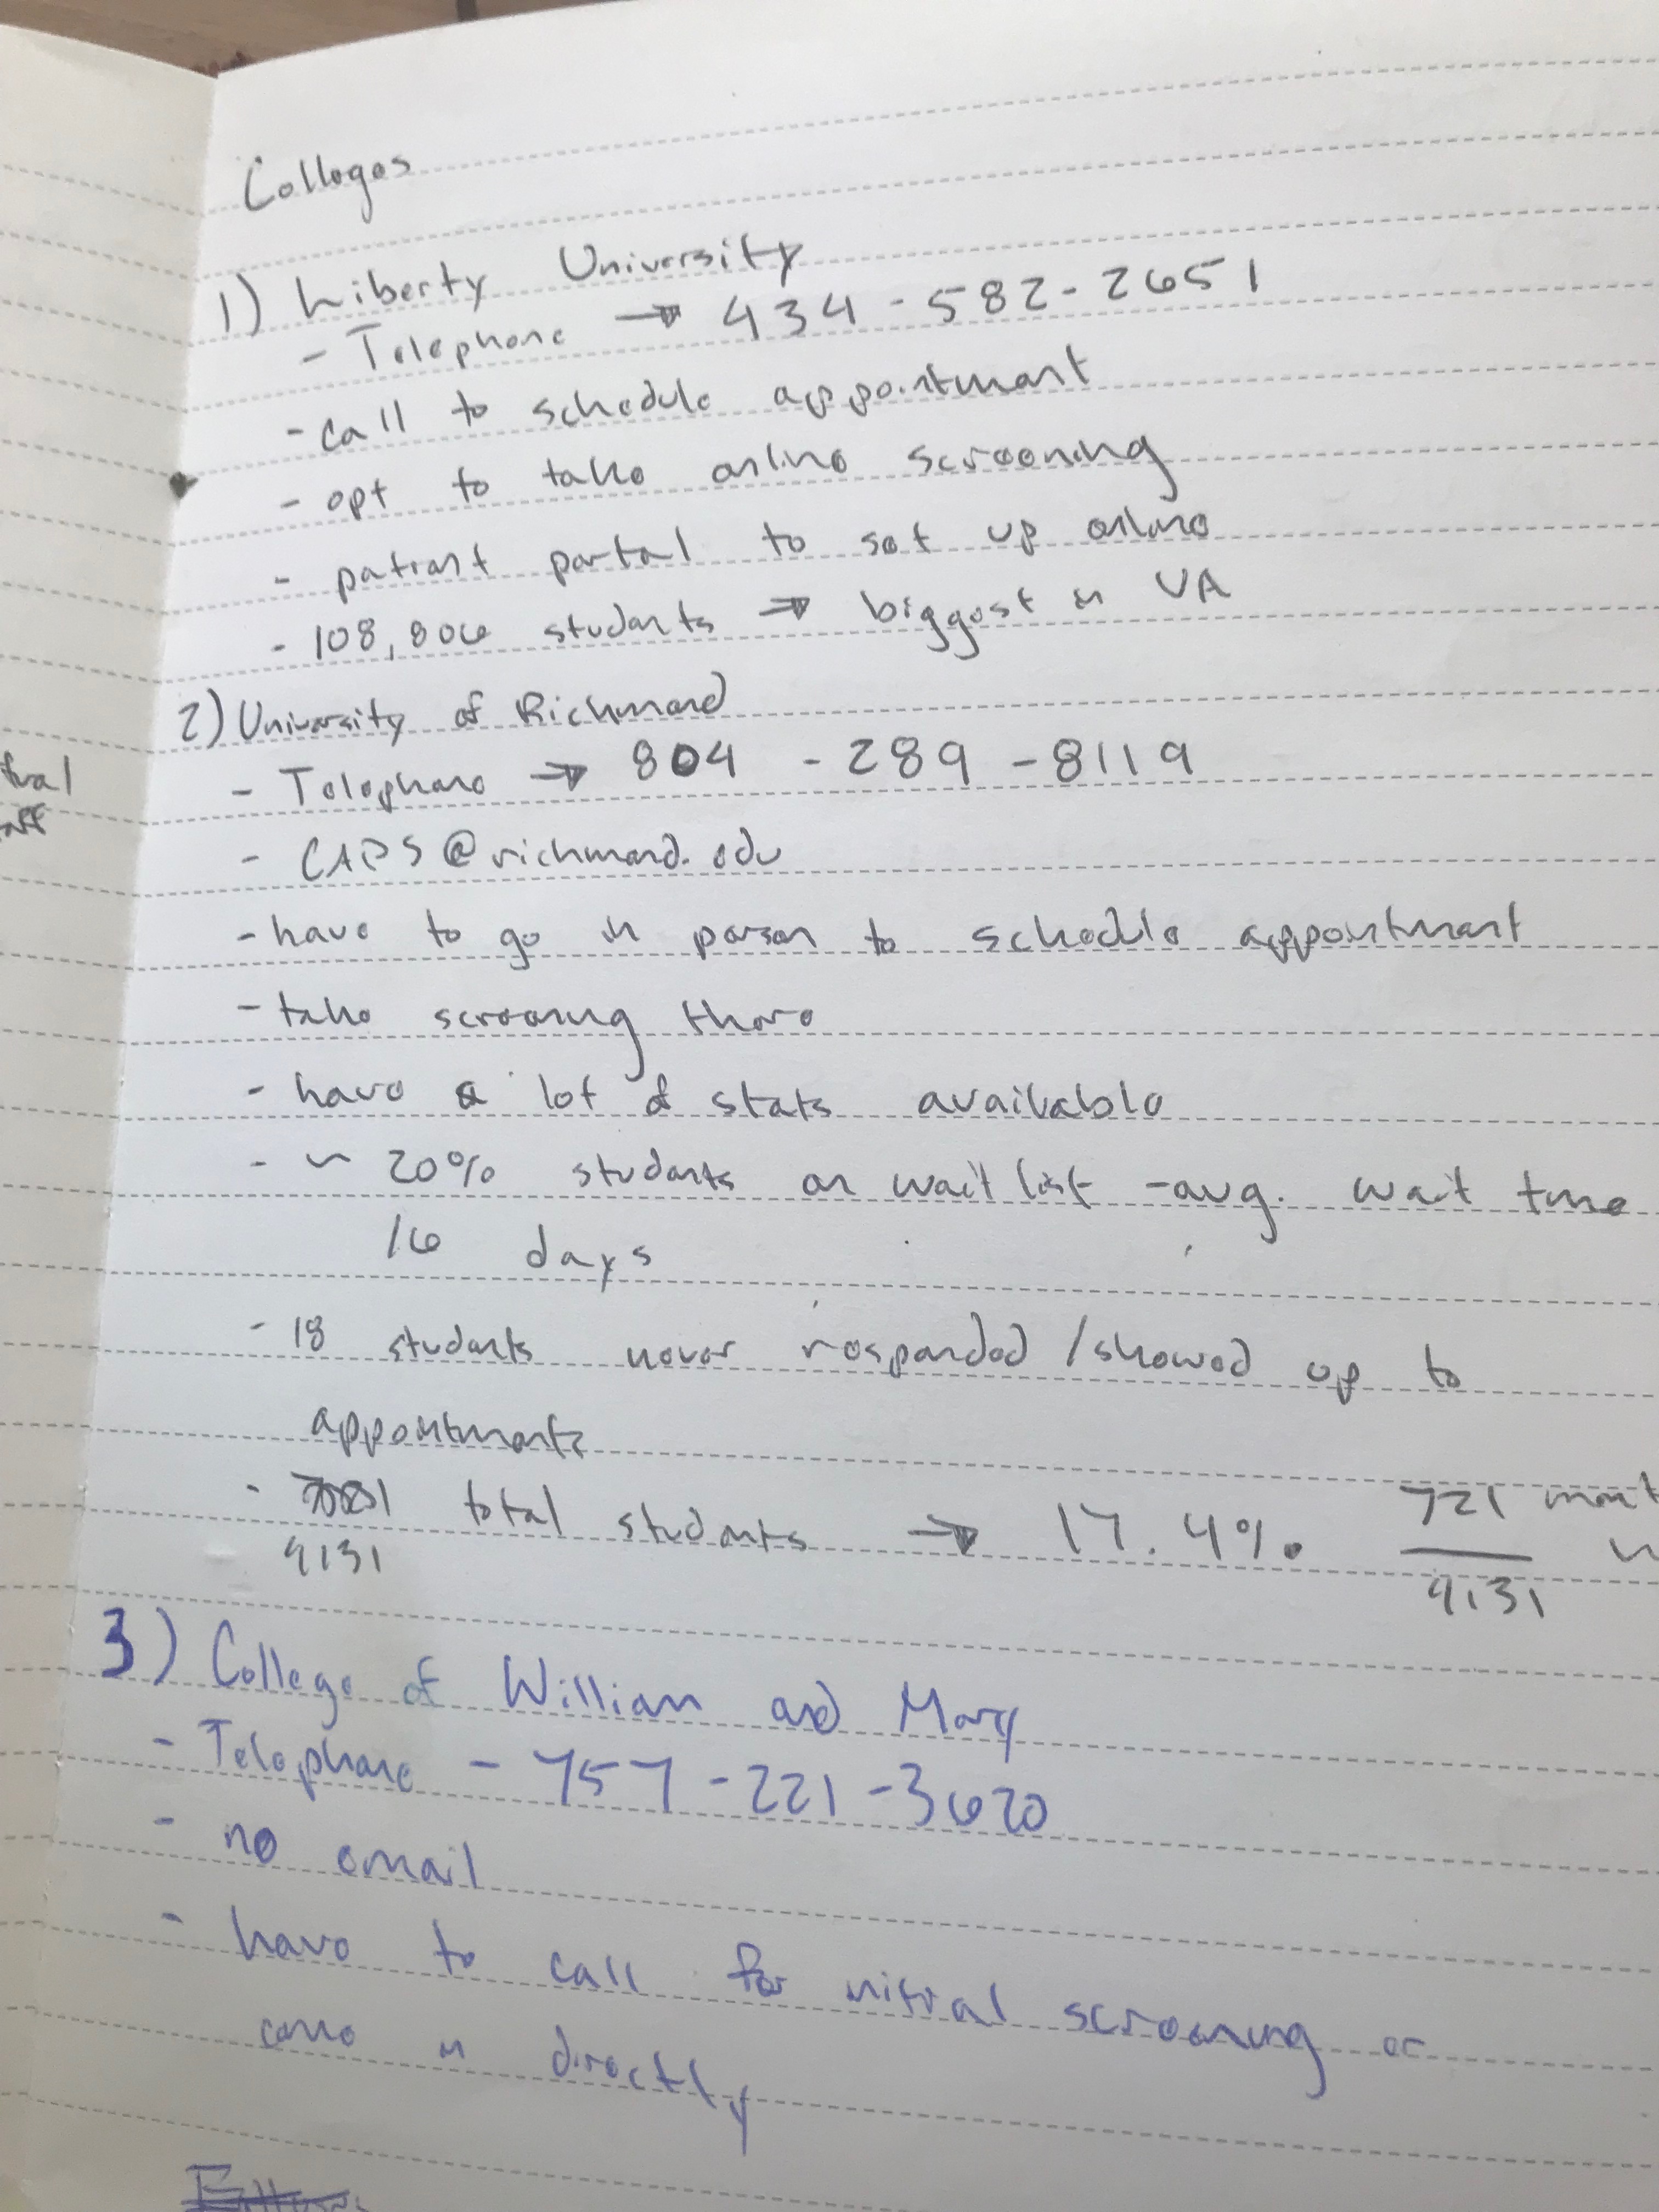 Colleges
1) Liberty University
- Telephone → 434-582-2651
- call to schedule appointment
- opt to take online screening
- patient portal to set up online
- 108,806 students → biggest in VA
2) University of Richmond
- Telephone → 804-289-8119
- CAPS@richmond.edu
- have to go in person to schedule appointment
- take screening there
- have a lot of stats available
- ~ 20% students on wait list - avg. wait time
16 days
- 18 students never responded/showed up to
appointments
- total students → 17.4% 721
4131 4131
3) College of William and Mary
- Telephone - 757-221-3620
- no email
- have to call for initial screening or
come in directly